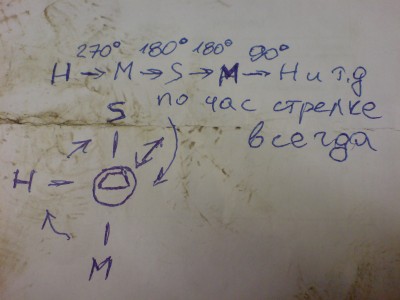 270° 180° 180° 90°
H → M → S → M → H и т.д
по час стрелке
всегда
S
H
M